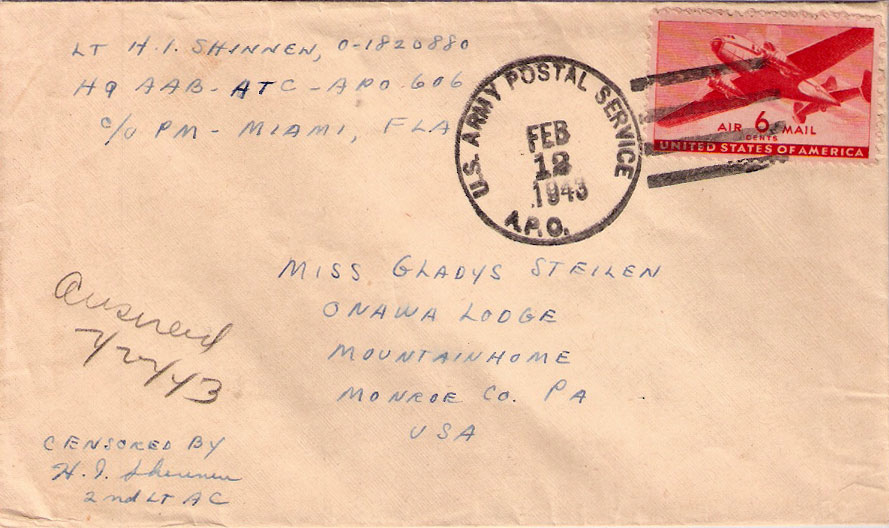 LT H. I. SHINNEN, O-1820880
HQ AAB - ATC - APO 606
c/o PM - MIAMI, FLA
U.S. ARMY POSTAL SERVICE
FEB
12
1943
A.P.O.
AIR 6 MAIL
CENTS
UNITED STATES OF AMERICA
MISS GLADYS STEILEN
ONAWA LODGE
MOUNTAINHOME
MONROE CO. PA
USA
Answered
2/22/43
CENSORED BY
H. I. Shinnen
2nd LT AC